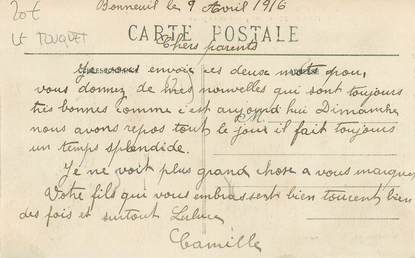 20€ Bonneuil le 9 Avril 1916
LE TOUQUET
CARTE POSTALE
Chers parents
Je vous envoie ces deux mots pour
vous donnez de mes nouvelles qui sont toujours
très bonnes comme c'est aujourd hui Dimanche
nous avons repos tout le jour il fait toujours
un temps splendide.
Je ne voit plus grand chose a vous marquer
Votre fils qui vous embrassent bien toucent bien
des fois et surtout
Camille